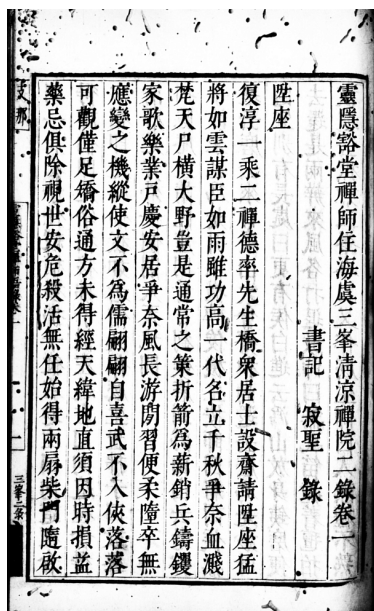 靈隱豁堂禪師住海虞三峯清涼禪院二錄卷一
書記 寂聖 錄
陞座
復淳一乘二禪德率先生橋衆居士設齋請陞座猛
將如雲謀臣如雨雖功高一代名立千秋爭奈血濺
梵天尸橫大野豈是通常之策折箭爲薪銷兵鑄钁
家歌樂業戸慶安居爭奈風長游閉習便柔墮卒無
應變之機縱使文不為儒翩翩自喜武不入俠落落
可觀僅足矯俗通方未得經天緯地直須因時損益
藥忌俱除視世安危殺活無任始得兩扇柴門隨啟
支那
一
三峯二錄